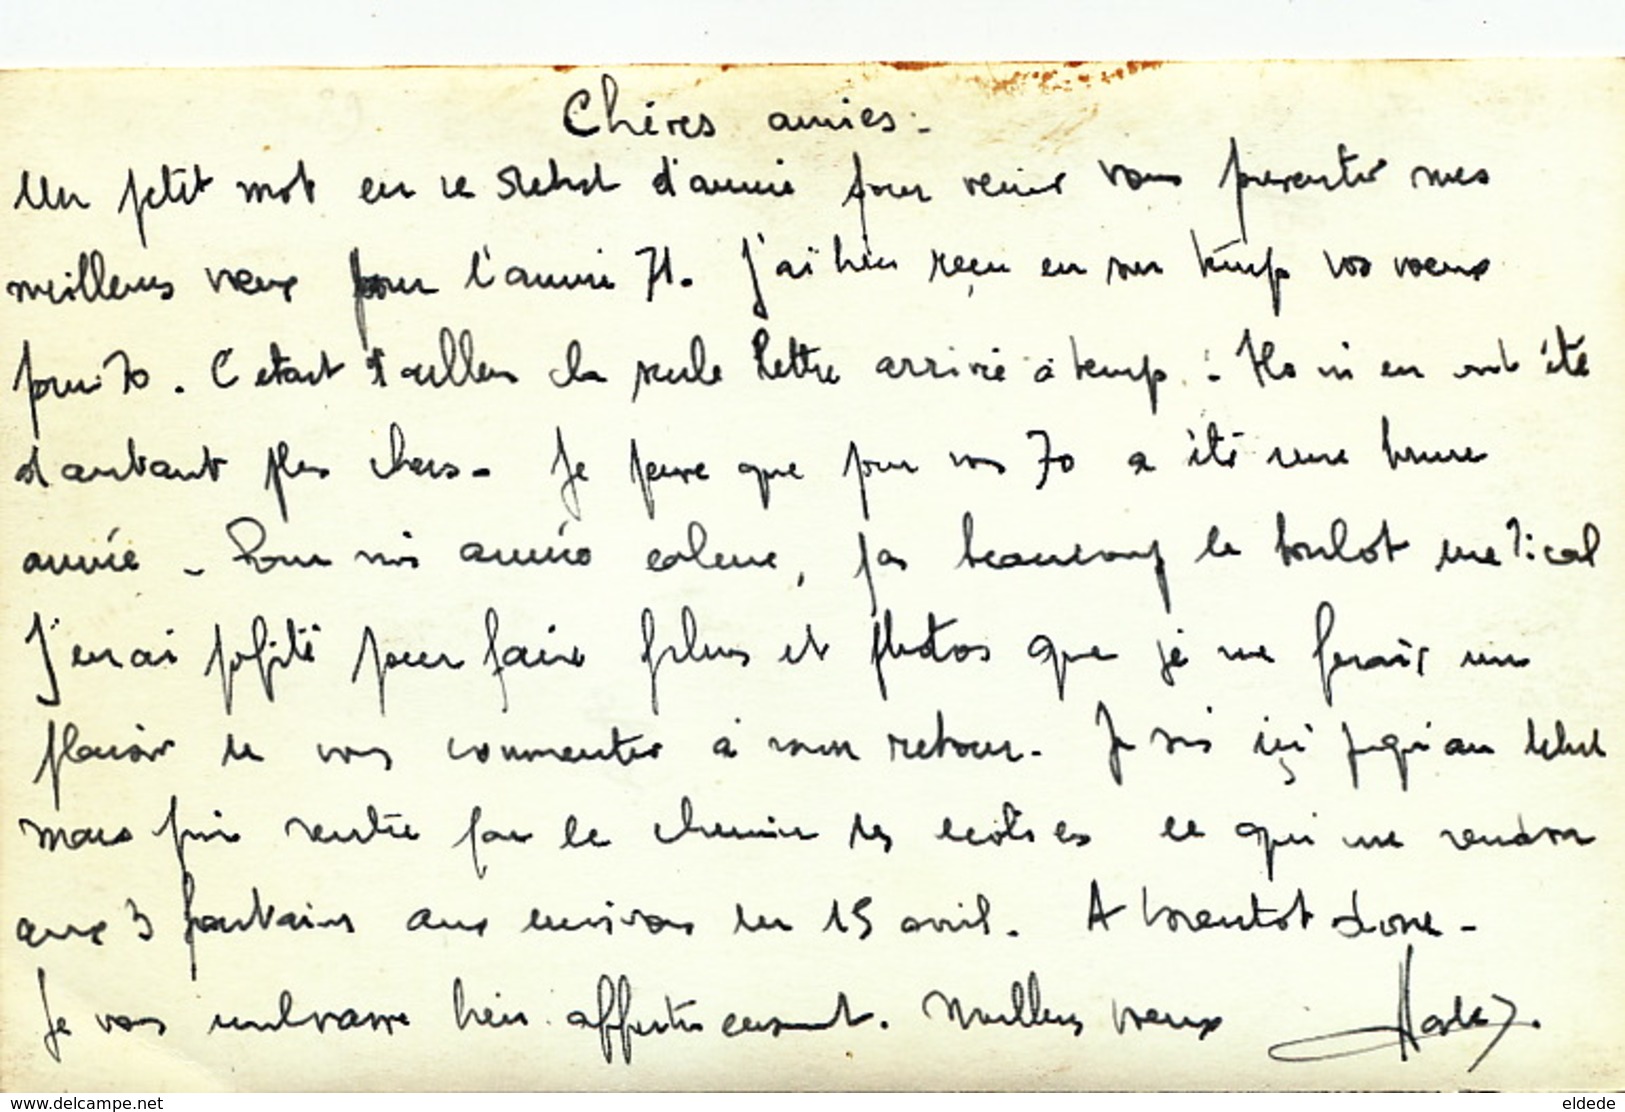 Chères amies -
Un petit mot en ce debut d'année pour venir vous presenter mes
meilleurs vœux pour l'année 71. J'ai bien reçu en son temps vos vœux
pour 70. C'etait d'ailleurs la seule lettre arrivée à temps. Ils m'en ont été
d'autant plus chers - Je pense que pour vous 70 a été une bonne
année - Pour moi année calme, pas beaucoup de boulot medical
J'en ai profité pour faire films et photos que je me ferais un
plaisir de vous commenter à mon retour - Je suis ici jusqu'au debut
mars puis rentre par le chemin des ecoliers ce qui me rendra
aux 3 fontaines aux environs du 15 avril. A bientot donc -
Je vous embrasse bien affectueusement. Meilleurs vœux
www.delcampe.net
eldede